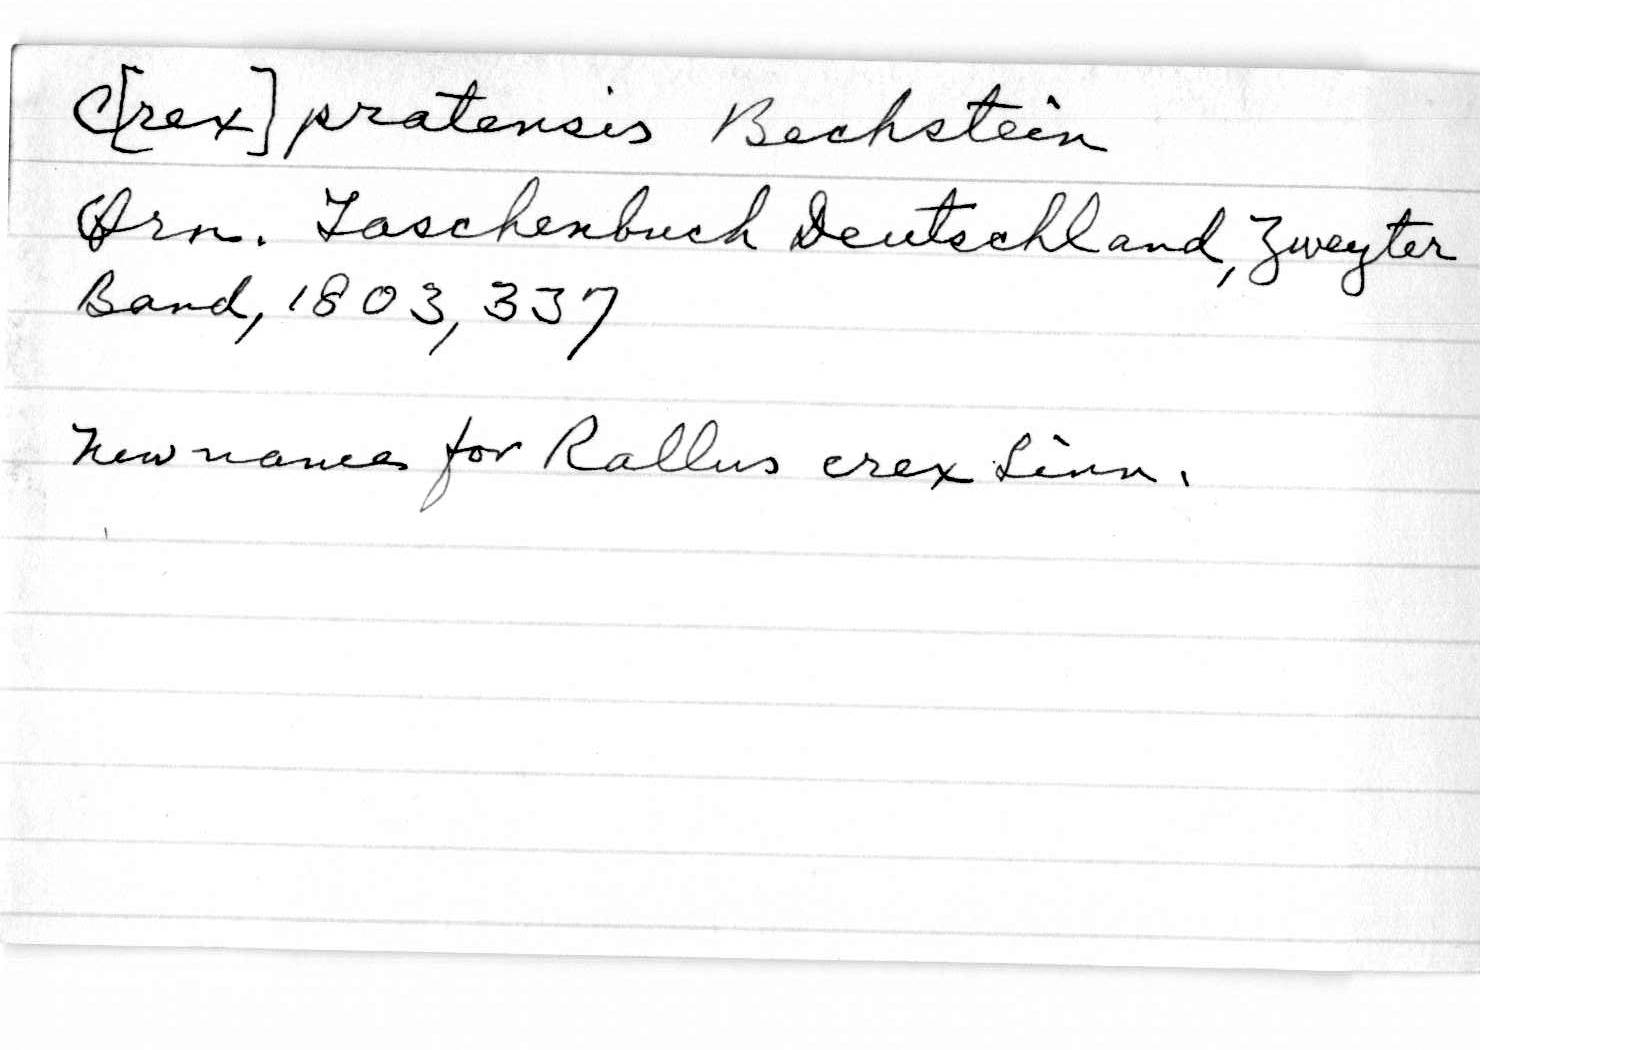 C[rex] pratensis Bechstein
Orn. Taschenbuch Deutschland, Zweyter
Band, 1803, 337
New names for Rallus crex Linn.